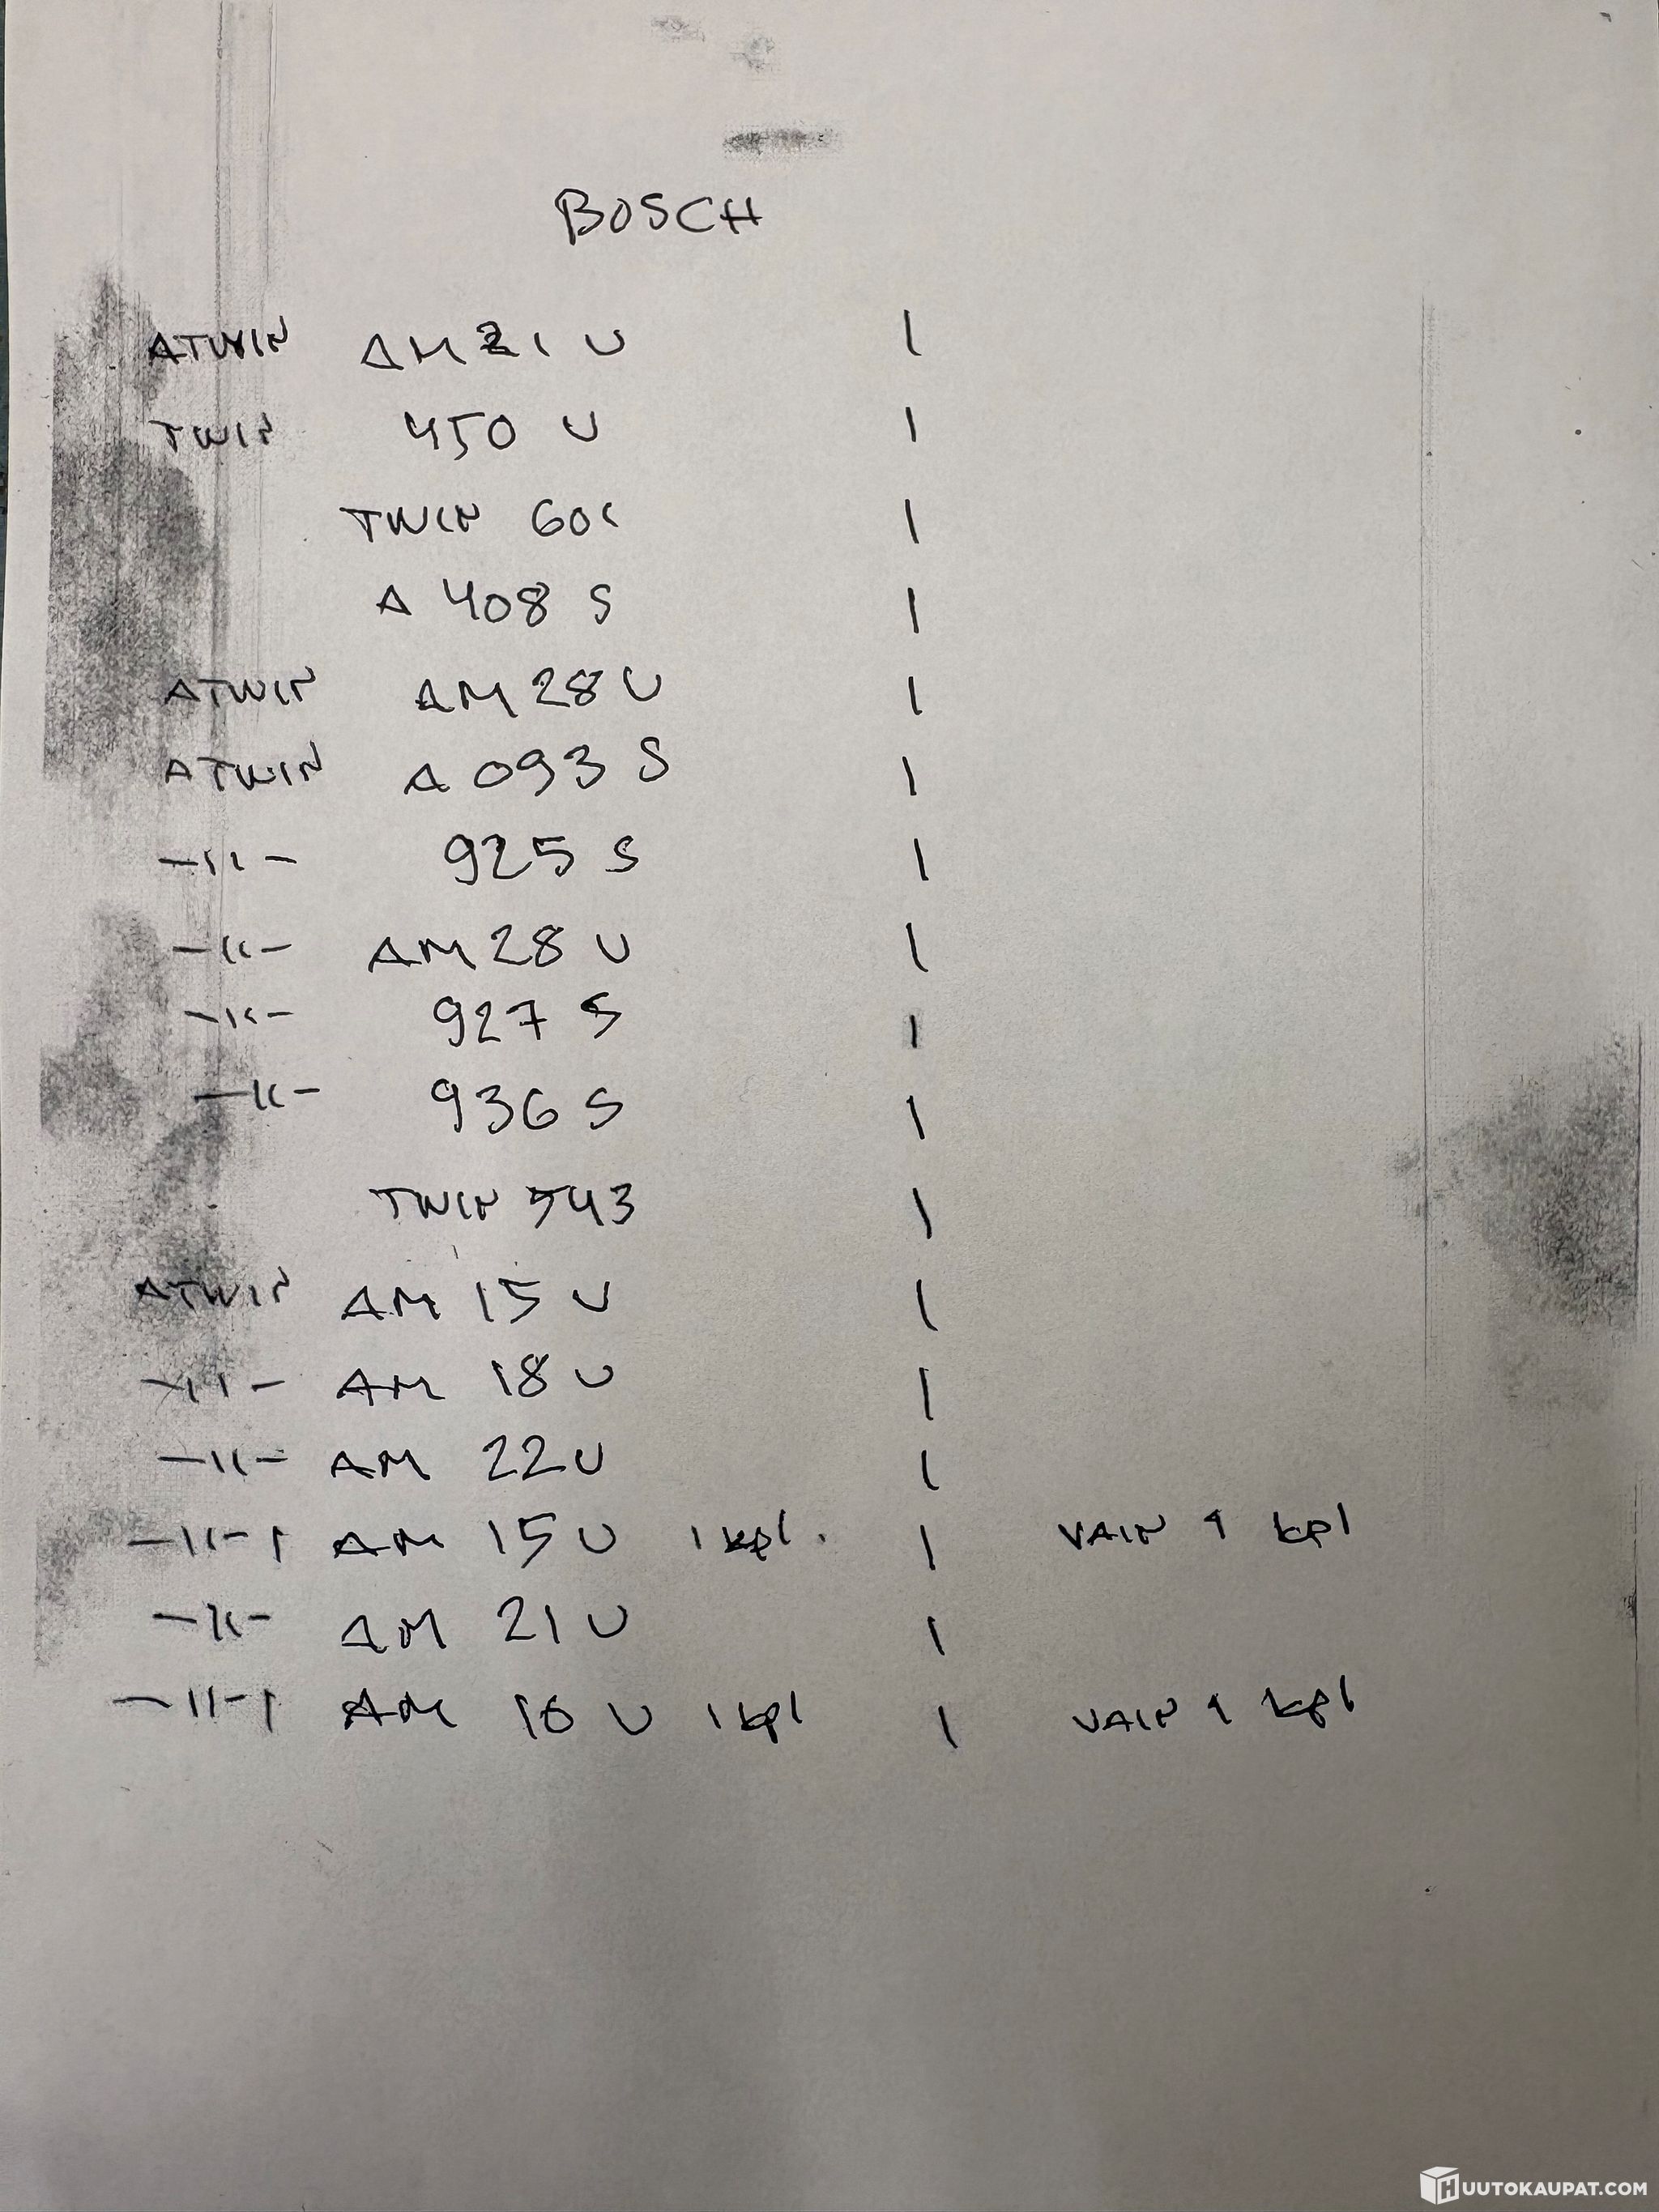 BOSCH
ATWIN AM21 U 1
TWIN 450 U 1
TWIN 601 1
A 408 S 1
ATWIN AM28 U 1
ATWIN A 093 S 1
-11- 925 S 1
-11- AM28 U 1
-11- 927 S 1
-11- 936 S 1
TWIN 543 1
ATWIN AM 15 U 1
-11- AM 18 U 1
-11- AM 22 U 1
-11-1 AM 15 U 1 kpl. 1 VAIN 1 kpl
-11- AM 21 U 1
-11-1 AM 16 U 1 kpl 1 VAIN 1 kpl
HUUTOKAUPAT.COM